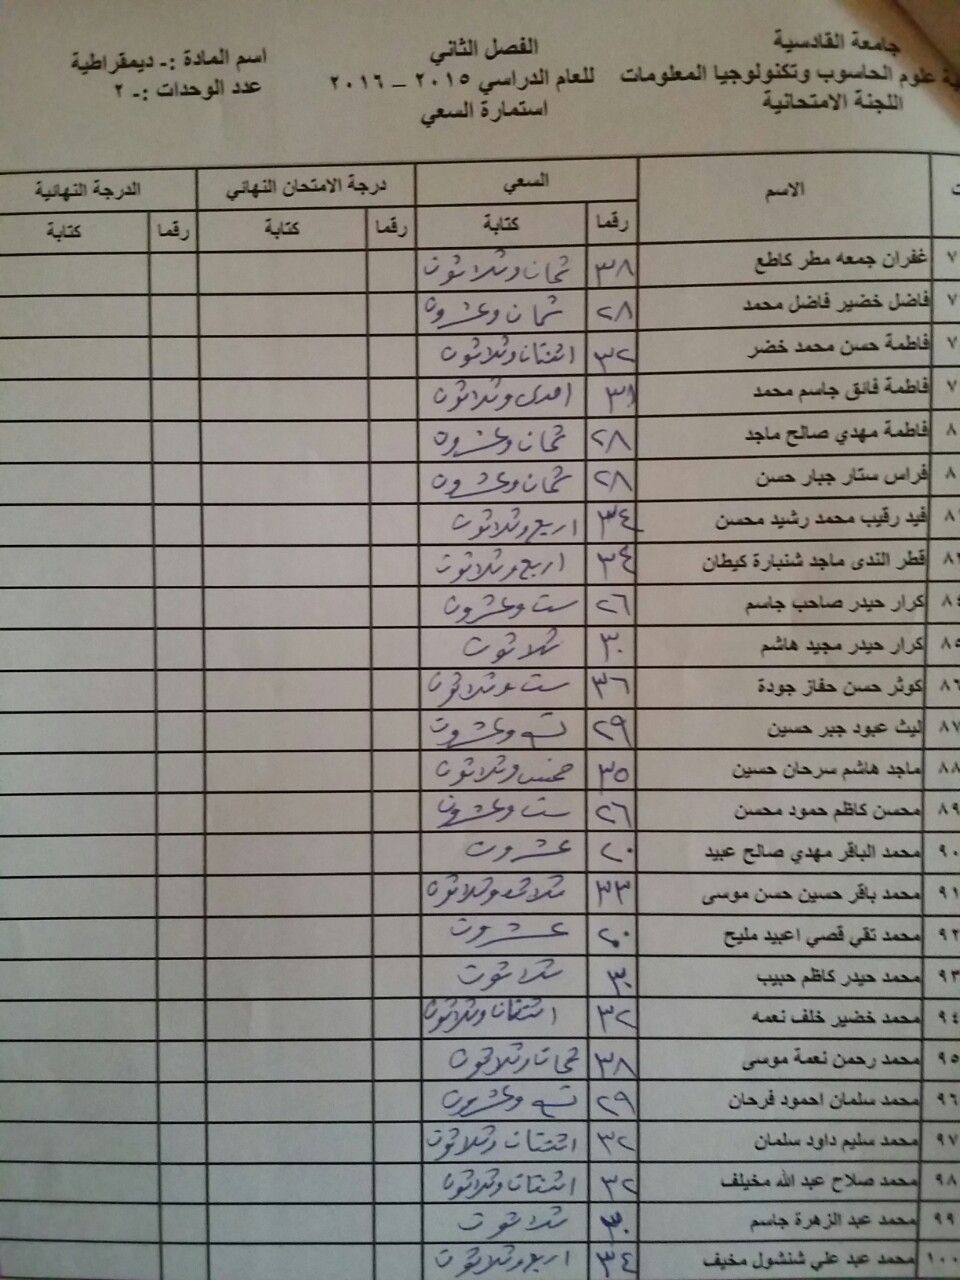 جامعة القادسية
ية علوم الحاسوب وتكنولوجيا المعلومات
اللجنة الامتحانية
الفصل الثاني
للعام الدراسي ٢٠١٥ – ٢٠١٦
استمارة السعي
اسم المادة :- ديمقراطية
عدد الوحدات :- ٢
ت الاسم السعي درجة الامتحان النهائي الدرجة النهائية
رقما كتابة رقما كتابة رقما كتابة
٧ غفران جمعه مطر كاطع ٣٨ ثمان وثلاثون
٧ فاضل خضير فاضل محمد ٢٨ ثمان وعشرون
٧ فاطمة حسن محمد خضر ٣٢ اثنتان وثلاثون
٧ فاطمة فائق جاسم محمد ٣١ احدى وثلاثون
٨ فاطمة مهدي صالح ماجد ٢٨ ثمان وعشرون
٨ فراس ستار جبار حسن ٢٨ ثمان وعشرون
٨ فيد رقيب محمد رشيد محسن ٣٤ اربع وثلاثون
٨٣ قطر الندى ماجد شنبارة كيطان ٣٤ اربع وثلاثون
٨٤ كرار حيدر صاحب جاسم ٢٦ ست وعشرون
٨٥ كرار حيدر مجيد هاشم ٣٠ ثلاثون
٨٦ كوثر حسن حفاز جودة ٣٦ ست وثلاثون
٨٧ ليث عبود جبر حسين ٢٩ تسع وعشرون
٨٨ ماجد هاشم سرحان حسين ٣٥ خمس وثلاثون
٨٩ محسن كاظم حمود محسن ٢٦ ست وعشرون
٩٠ محمد الباقر مهدي صالح عبيد ٢٠ عشرون
٩١ محمد باقر حسين حسن موسى ٣٣ ثلاث وثلاثون
٩٢ محمد تقي قصي اعبيد مليح ٢٠ عشرون
٩٣ محمد حيدر كاظم حبيب ٣٠ ثلاثون
٩٤ محمد خضير خلف نعمه ٣٢ اثنتان وثلاثون
٩٥ محمد رحمن نعمة موسى ٣٨ ثمان وثلاثون
٩٦ محمد سلمان احمود فرحان ٢٩ تسع وعشرون
٩٧ محمد سليم داود سلمان ٣٢ اثنتان وثلاثون
٩٨ محمد صلاح عبد الله مخيلف ٣٢ اثنتان وثلاثون
٩٩ محمد عبد الزهرة جاسم ٣٠ ثلاثون
١٠٠ محمد عبد علي شنشول مخيف ٣٤ اربع وثلاثون